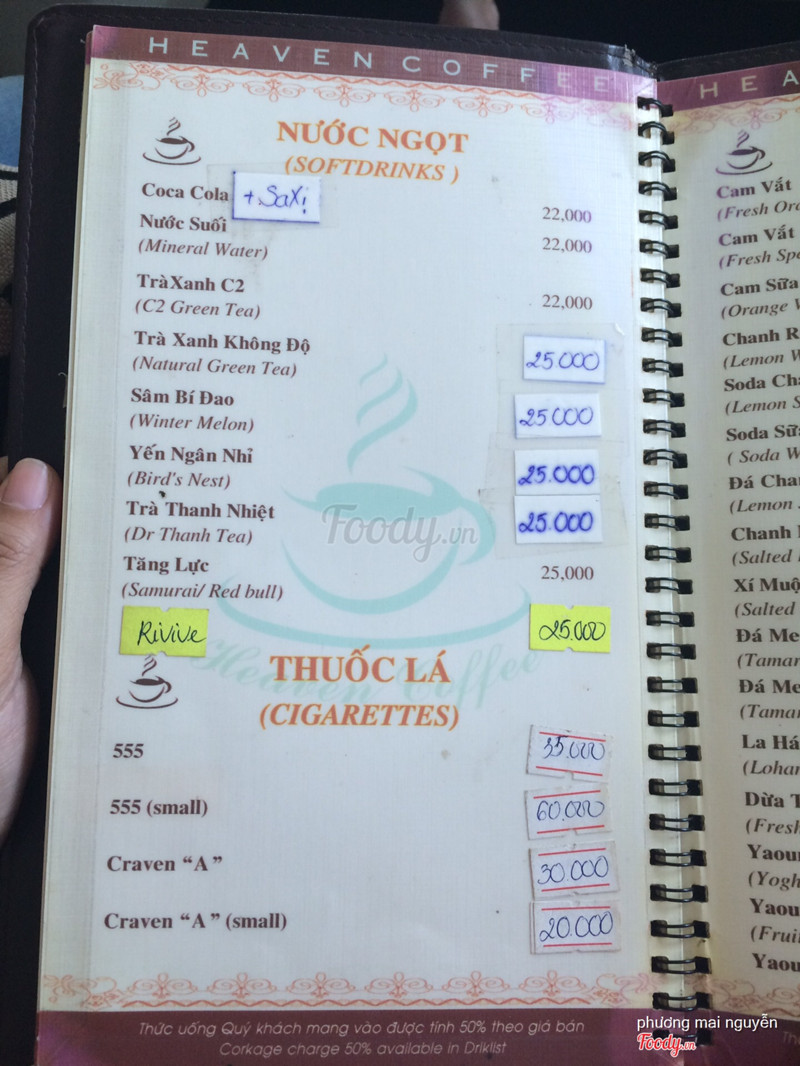 HEAVEN COFFEE
NƯỚC NGỌT
(SOFTDRINKS )
Coca Cola +Saxi 22,000
Nước Suối 22,000
(Mineral Water)
TràXanh C2
(C2 Green Tea) 22,000
Trà Xanh Không Độ 25.000
(Natural Green Tea)
Sâm Bí Đao 25.000
(Winter Melon)
Yến Ngân Nhĩ 25.000
(Bird's Nest)
Trà Thanh Nhiệt 25.000
(Dr Thanh Tea)
Tăng Lực 25,000
(Samurai/ Red bull)
Rivive 25.000
THUỐC LÁ
(CIGARETTES)
555 35.000
555 (small) 60.000
Craven “A” 30.000
Craven “A” (small) 20.000
Thức uống Quý khách mang vào được tính 50% theo giá bán
Corkage charge 50% available in Driklist
Foody.vn
Heaven Coffee
HEA
Cam Vắt
(Fresh Ora
Cam Vắt
(Fresh Spe
Cam Sữa
(Orange
Chanh R
(Lemon W
Soda Cha
(Lemon S
Soda Sữ
( Soda W
Đá Chan
(Lemon
Chanh
(Salted
Xí Muộ
(Salted
Đá Me
(Tamar
Đá Me
(Tamar
La Há
(Lohan
Dừa T
(Fresh
Yaou
(Yogh
Yaou
(Frui
Yaou
phương mai nguyễn
Foody.vn